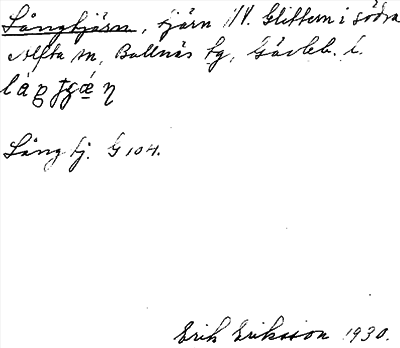 Långtjärn, tjärn i N. Glittern i södra
Alfta sn, Bollnäs tg, Gävleb. l.
Lång tj. G 104.
Erik Eriksson 1930.